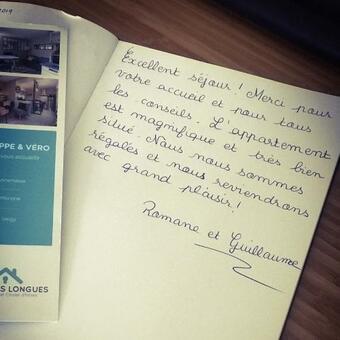 2019
Excellent séjour ! Merci pour
votre accueil et pour tous
les conseils. L'appartement
est magnifique et très bien
situé. Nous nous sommes
régalés et nous reviendrons
avec grand plaisir !
Romane et Guillaume
PPE & VÉRO
vous accueille
S LONGUES